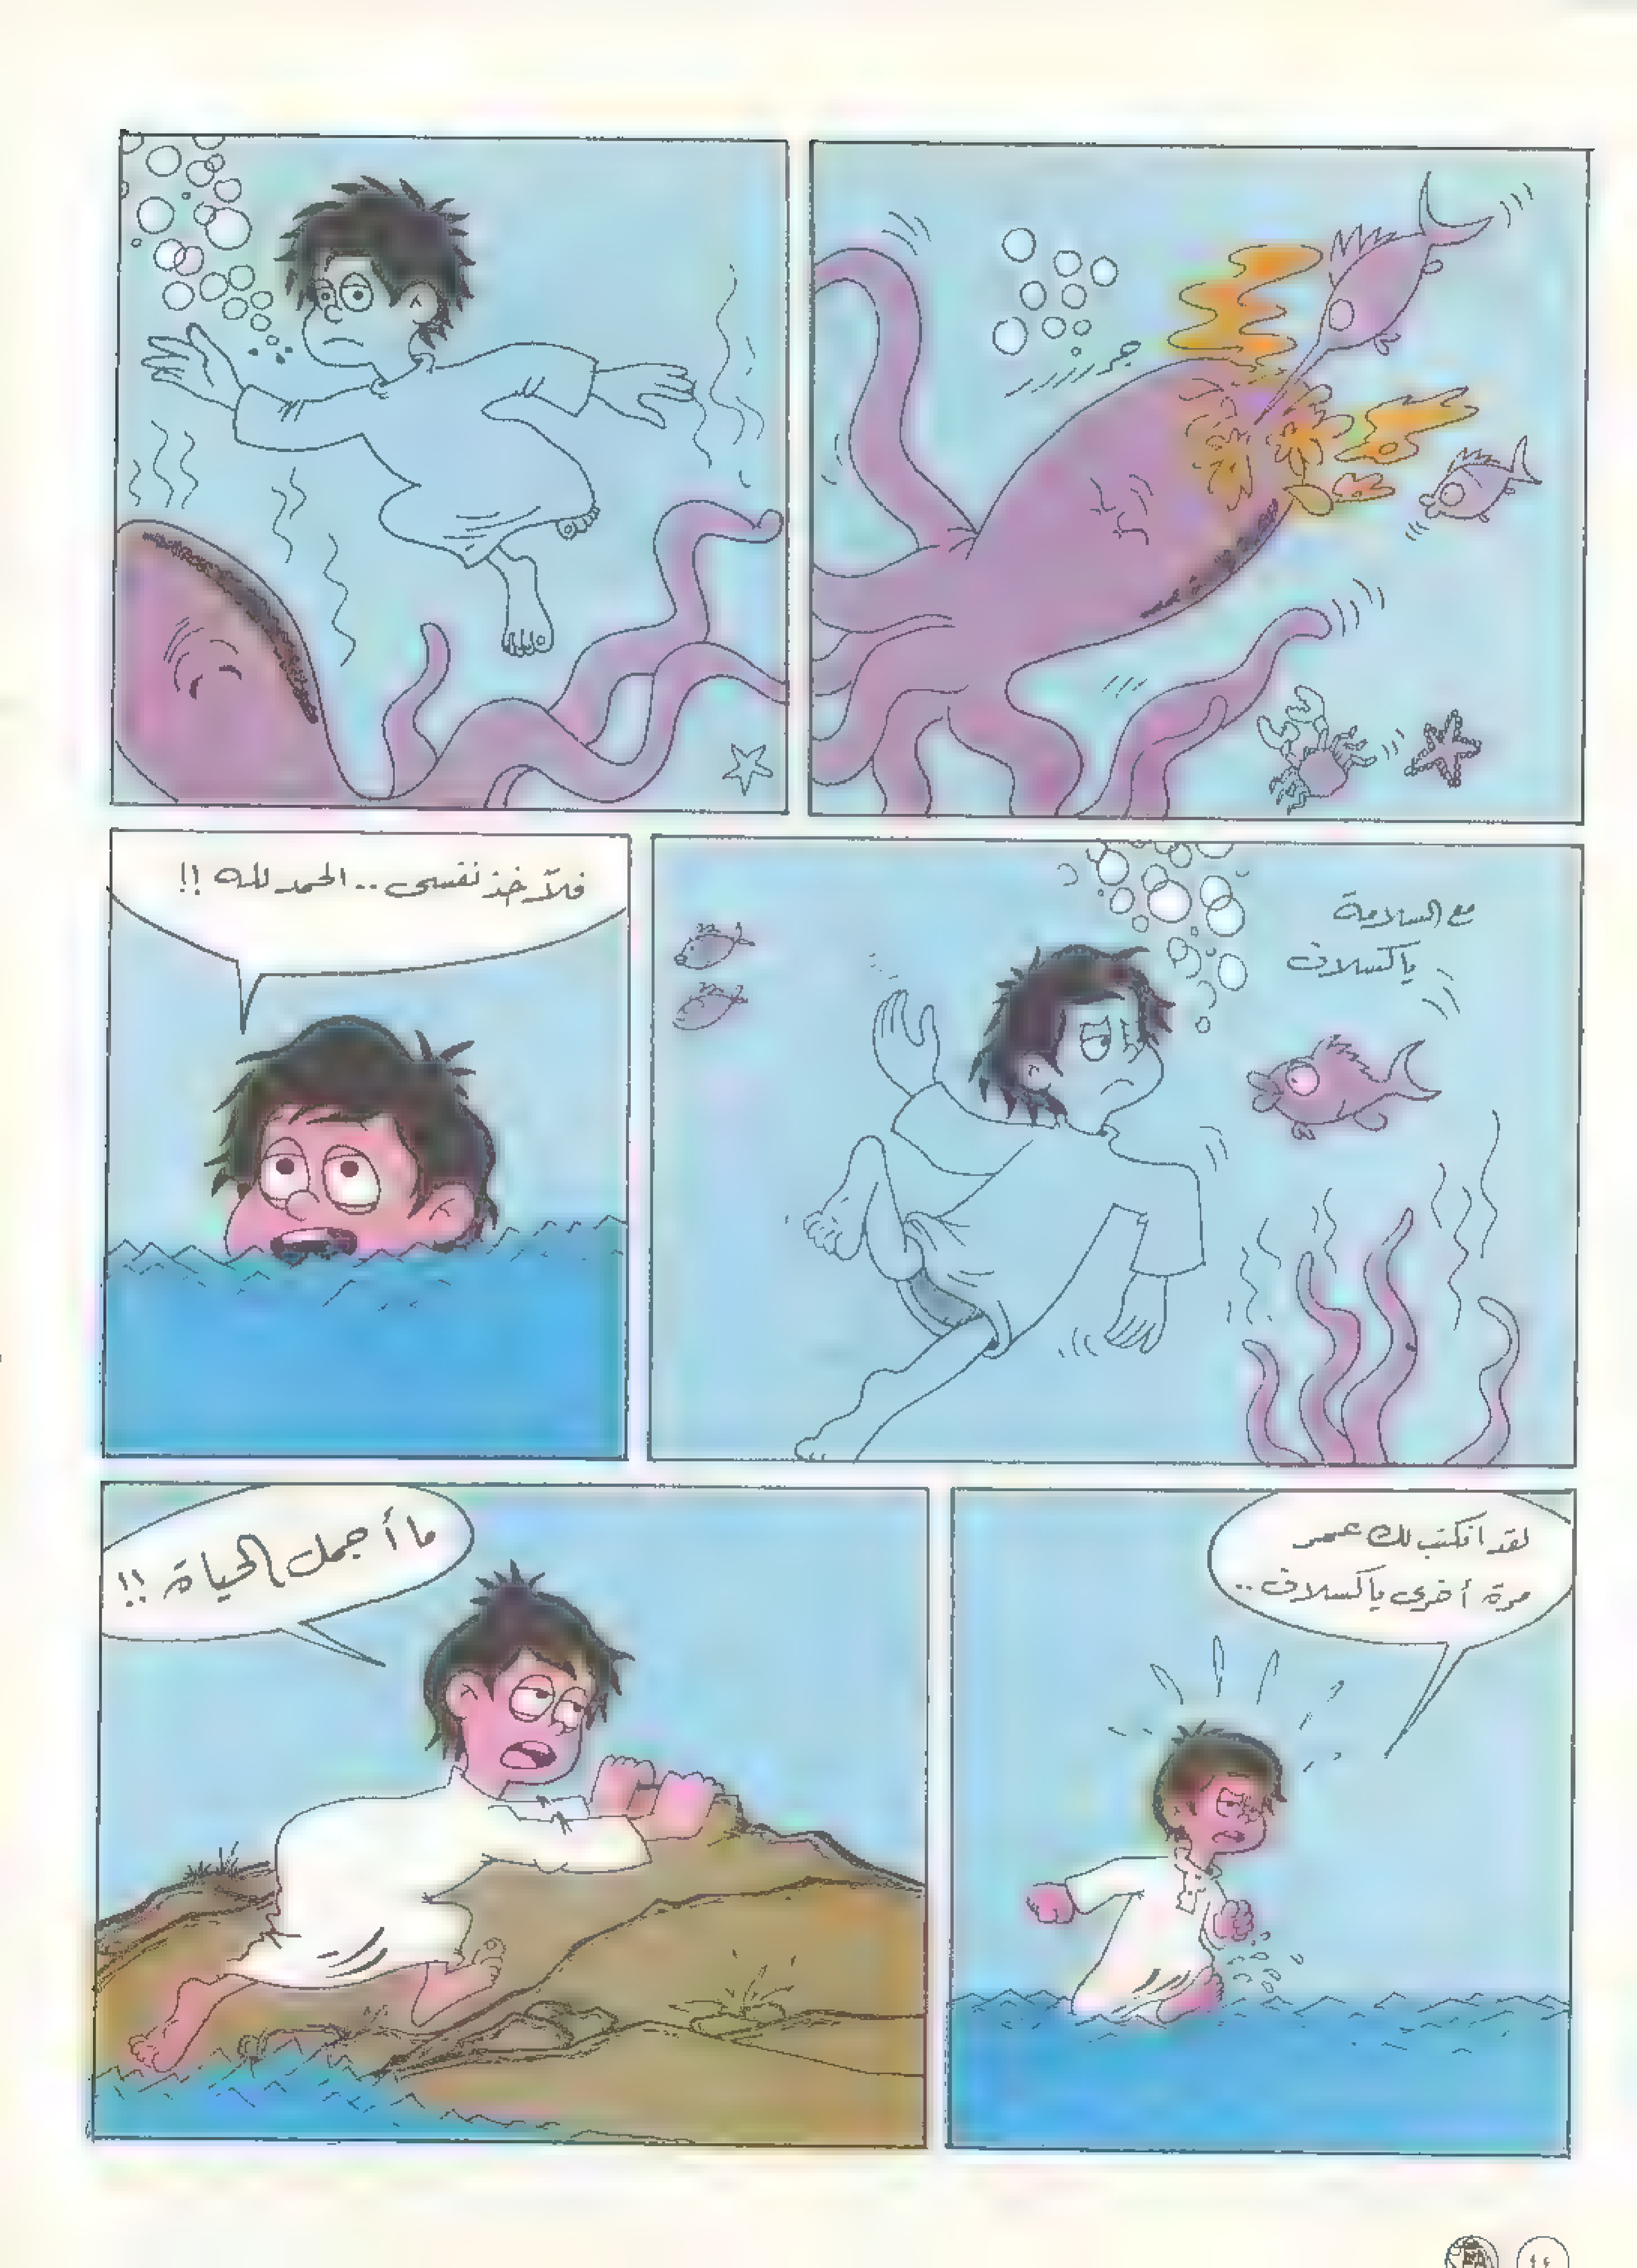 جررررر
مع السلامة
ياكسلان
فلآخذ نفسى .. الحمد لله !!
لقد انكتب لك عمر
مرة أخرى ياكسلان ..
ما أجمل الحياة !!